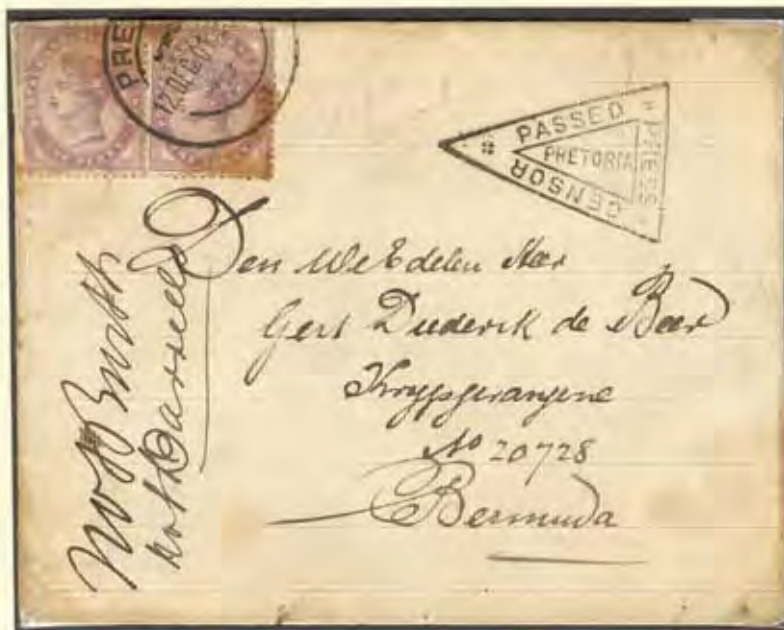 PRE
12 DE 01
PASSED
PRESS
CENSOR
PRETORIA
Den WelEdelen Heer
Gert Diederik de Beer
Krygsgevangene
No 20728
Bermuda
Not
not Darrells